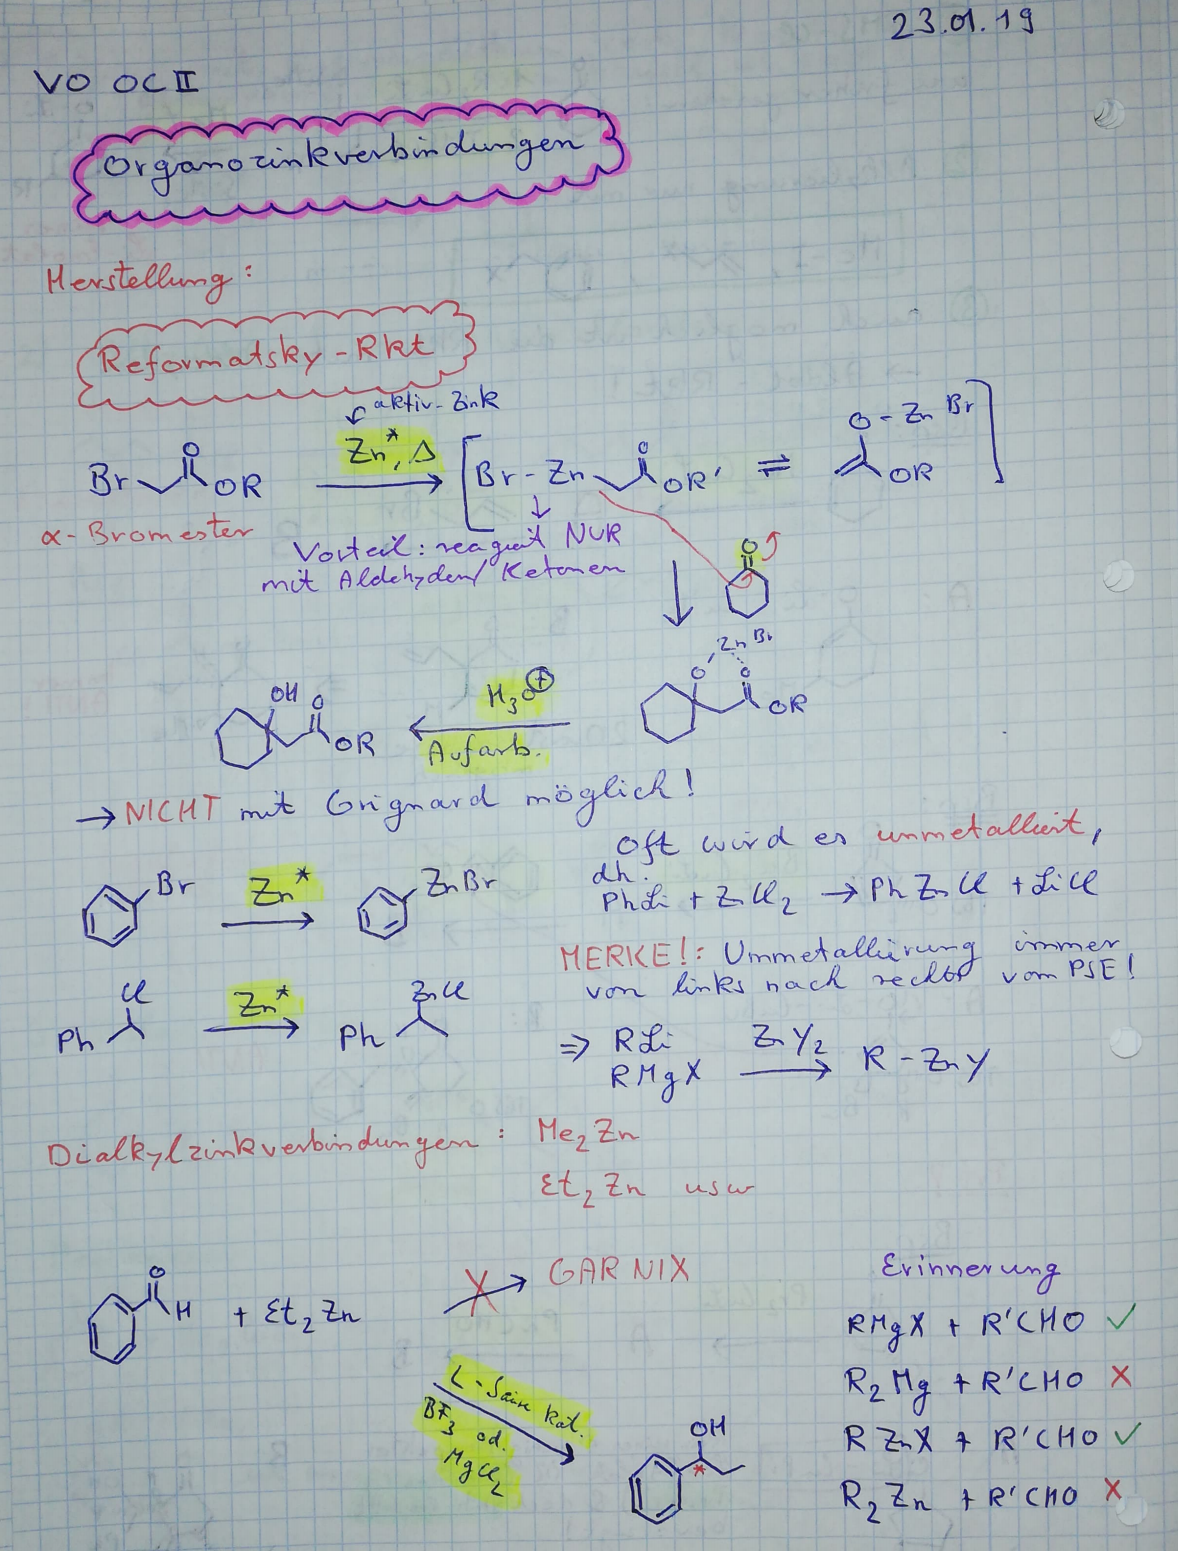 23.01.19
VO OC II
Organozinkverbindungen
Herstellung:
Reformatsky-Rkt
aktiv-Zink
Zn*, Δ
Br O OR
Br-Zn O OR' ⇌ O-ZnBr OR
α-Bromester
Vorteil: reagiert NUR
mit Aldehyden/Ketonen
O
ZnBr
O O OR
H3O⊕
Aufarb.
OH O OR
→ NICHT mit Grignard möglich!
Oft wird es ummetalliert,
dh.
PhLi + ZnCl2 → PhZnCl + LiCl
Br Zn* ZnBr
MERKE!: Ummetallierung immer
von links nach rechts vom PSE!
Cl Zn* ZnCl
Ph Ph
⇒ RLi ZnY2 R-ZnY
RMgX
Dialkylzinkverbindungen: Me2Zn
Et2Zn usw
O H + Et2Zn GAR NIX
L-Säure Kat.
BF3 od.
MgCl2
OH
*
Erinnerung
RMgX + R'CHO ✓
R2Mg + R'CHO X
RZnX + R'CHO ✓
R2Zn + R'CHO X